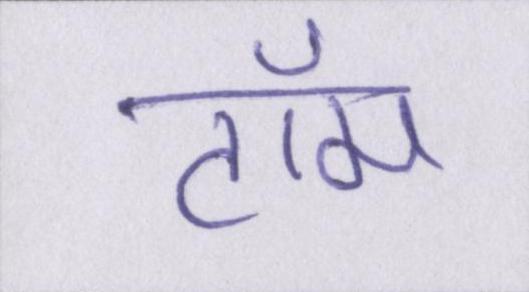 टॉम